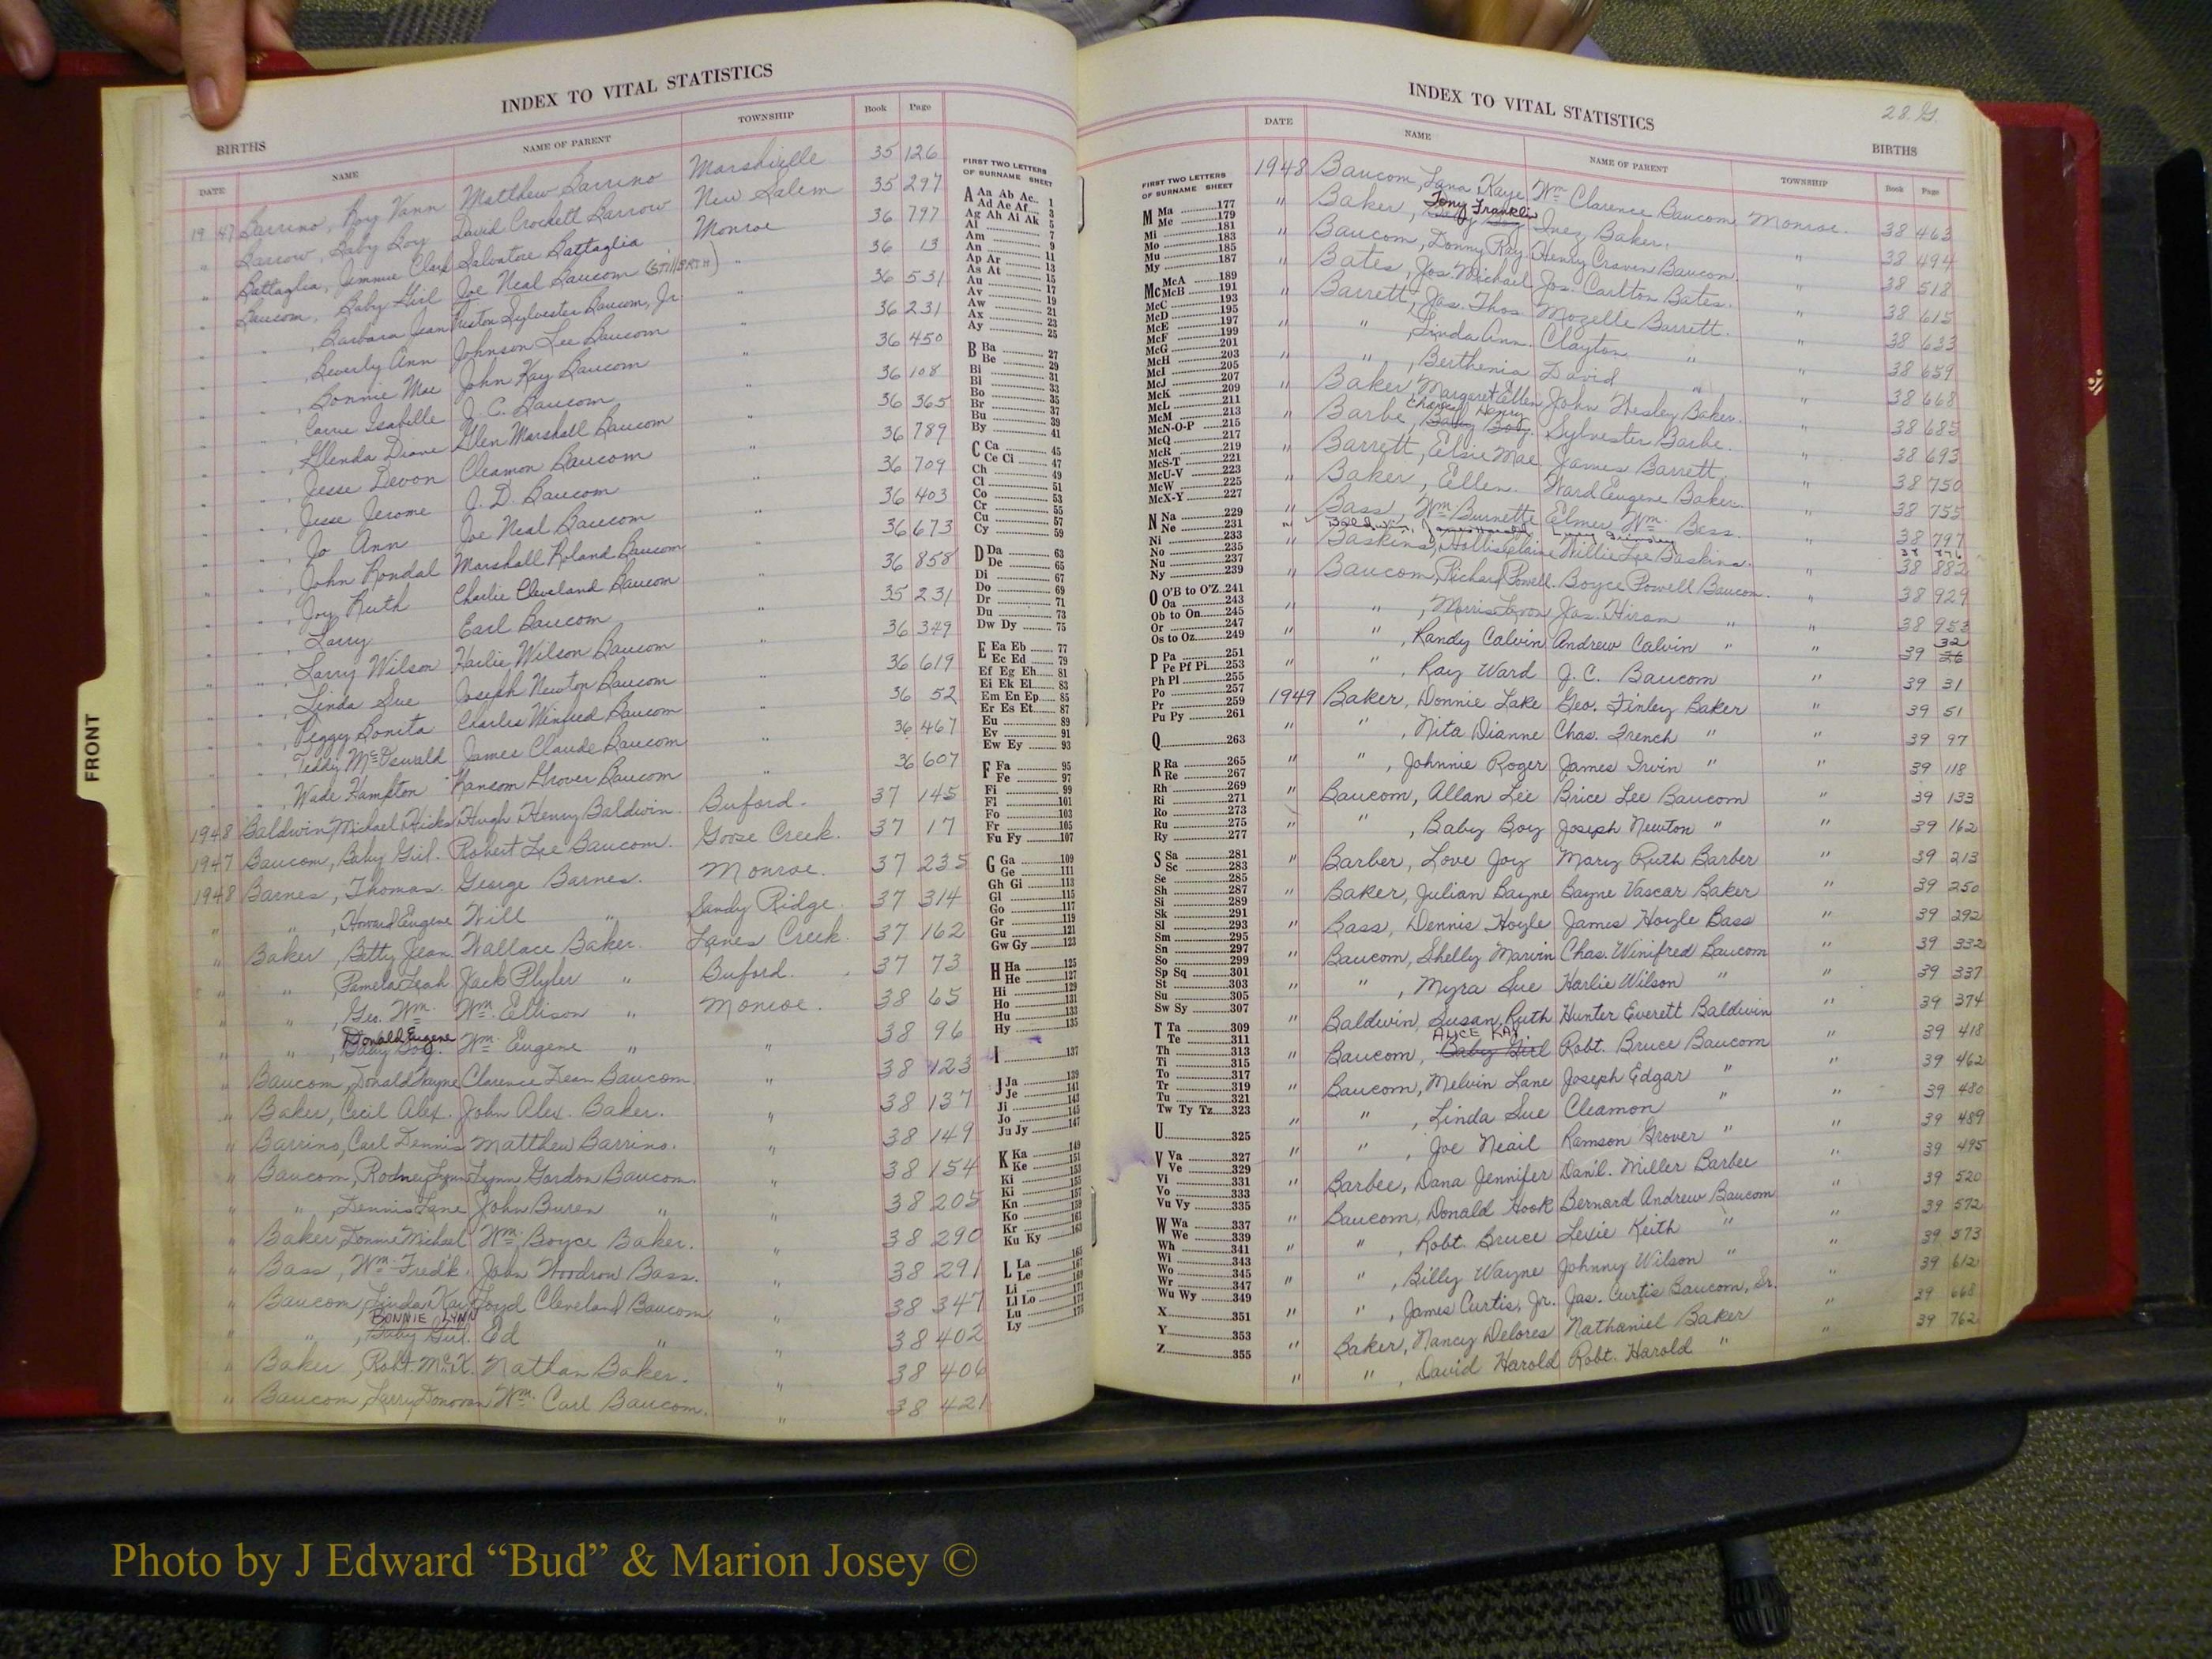 INDEX TO VITAL STATISTICS
BIRTHS
DATE NAME NAME OF PARENT TOWNSHIP Book Page
1947 Barrino, Roy Vann Matthew Barrino Marshville 35 126
" Barrow, Baby Boy David Crockett Barrow New Salem 35 297
" Battaglia, Jimmie Clark Salvatore Battaglia Monroe 36 797
" Baucom, Baby Girl Joe Neal Baucom (STILLBIRTH) " 36 13
" " , Barbara Jean Sylvester Baucom, Jr " 36 531
" " , Beverly Ann Johnson Lee Baucom 36 231
" " , Bonnie Mae John Kay Baucom " 36 450
" " , Carrie Isabelle J. C. Baucom 36 108
" " , Glenda Diane Glen Marshall Baucom " 36 365
" " , Jesse Devon Cleamon Baucom 36 789
" " , Jesse Jerome J. D. Baucom " 36 709
" " , Jo Ann Joe Neal Baucom " 36 403
" " , John Rondal Marshall Roland Baucom " 36 673
" " , Joy Ruth Charlie Cleveland Baucom " 36 858
" " , Larry Earl Baucom " 35 231
" " , Larry Wilson Harlie Wilson Baucom " 36 349
" " , Linda Sue Joseph Newton Baucom " 36 619
" " , Peggy Bonita Charles Winfred Baucom " 36 52
" " , Teddy McOswald James Claude Baucom " 36 467
" " , Wade Hampton Ransom Grover Baucom " 36 607
1948 Baldwin, Michael Hicks Hugh Henry Baldwin. Buford. 37 145
1947 Baucom, Baby Girl. Robert Lee Baucom. Goose Creek. 37 17
1948 Barnes, Thomas. George Barnes. Monroe. 37 235
" " , Howard Eugene Will " Sandy Ridge. 37 314
" Baker, Betty Jean. Wallace Baker. Lanes Creek. 37 162
" " , Pamela Leah Jack Plyler " Buford. 37 73
" " , Geo. Wm. Wm. Ellison " Monroe. 38 65
Donald Eugene
" " , Baby Boy. Wm. Eugene " " 38 96
" Baucom, Donald Wayne Clarence Dean Baucom. " 38 123
" Baker, Cecil Alex. John Alex. Baker. " 38 137
" Barrino, Carl Dennis Matthew Barrino. " 38 149
" Baucom, Rodney Lynn Lynn Gordon Baucom. " 38 154
" " , Dennis Lane John Buren " " 38 205
" Baker, Donnie Michael Wm. Boyce Baker. " 38 290
" Bass, Wm. Fredk. John Woodrow Bass. " 38 291
" Baucom, Linda Kay Loyd Cleveland Baucom " 38 347
BONNIE LYNN
" " , Baby Girl. Ed " " 38 402
" Baker, Robt. McK. Nathan Baker. " 38 406
" Baucom, Larry Donovan Wm. Carl Baucom. " 38 421
FIRST TWO LETTERS
OF SURNAME SHEET
A Aa Ab Ac 1
Ad Ae Af 3
Ag Ah Ai Ak 5
Al 7
Am 9
An 11
Ap Ar 13
As At 15
Au 17
Av 19
Aw 21
Ax 23
Ay 25
B Ba 27
Be 29
Bi 31
Bl 33
Bo 35
Br 37
Bu 39
By 41
C Ca 45
Ce Ci 47
Ch 49
Cl 51
Co 53
Cr 55
Cu 57
Cy 59
D Da 63
De 65
Di 67
Do 69
Dr 71
Du 73
Dw Dy 75
E Ea Eb 77
Ec Ed 79
Ef Eg Eh 81
Ei Ek El 83
Em En Ep 85
Er Es Et 87
Eu 89
Ev 91
Ew Ey 93
F Fa 95
Fe 97
Fi 99
Fl 101
Fo 103
Fr 105
Fu Fy 107
G Ga 109
Ge 111
Gh Gi 113
Gl 115
Go 117
Gr 119
Gu 121
Gw Gy 123
H Ha 125
He 127
Hi 129
Ho 131
Hu 133
Hy 135
I 137
J Ja 139
Je 141
Ji 143
Jo 145
Ju Jy 147
K Ka 149
Ke 151
Ki 153
Ki 155
Kn 157
Ko 159
Kr 161
Ku Ky 163
L La 165
Le 167
Li 169
Ll Lo 171
Lu 173
Ly 175
INDEX TO VITAL STATISTICS
28. G.
BIRTHS
DATE NAME NAME OF PARENT TOWNSHIP Book Page
FIRST TWO LETTERS
OF SURNAME SHEET
M Ma 177
Me 179
Mi 181
Mo 183
Mu 185
My 187
Mc McA 189
McB 191
McC 193
McD 195
McE 197
McF 199
McG 201
McH 203
McI 205
McJ 207
McK 209
McL 211
McM 213
McN-O-P 215
McQ 217
McR 219
McS-T 221
McU-V 223
McW 225
McX-Y 227
N Na 229
Ne 231
Ni 233
No 235
Nu 237
Ny 239
O O'B to O'Z 241
Oa 243
Ob to On 245
Or 247
Os to Oz 249
P Pa 251
Pe Pf Pi 253
Ph Pl 255
Po 257
Pr 259
Pu Py 261
Q 263
R Ra 265
Re 267
Rh 269
Ri 271
Ro 273
Ru 275
Ry 277
S Sa 281
Sc 283
Se 285
Sh 287
Si 289
Sk 291
Sl 293
Sm 295
Sn 297
So 299
Sp Sq 301
St 303
Su 305
Sw Sy 307
T Ta 309
Te 311
Th 313
Ti 315
To 317
Tr 319
Tu 321
Tw Ty Tz 323
U 325
V Va 327
Ve 329
Vi 331
Vo 333
Vu Vy 335
W Wa 337
We 339
Wh 341
Wi 343
Wo 345
Wr 347
Wu Wy 349
X 351
Y 353
Z 355
1948 Baucom, Lana Kaye Wm. Clarence Baucom Monroe. 38 463
Tony Franklin
" Baker, Baby Boy Inez Baker. " 38 494
" Baucom, Donny Ray Henry Craven Baucom. " 38 518
" Bates, Jos. Michael Jos. Carlton Bates. " 38 615
" Barrett, Jas. Thos. Mozelle Barrett. " 38 633
" " , Linda Ann. Clayton " " 38 659
" " , Berthenia David " " 38 668
" Baker, Margaret Ellen John Wesley Baker. " 38 685
Charles Henry
" Barbe, Baby Boy. Sylvester Barbe. " 38 693
" Barrett, Elsie Mae James Barrett " 38 750
" Baker, Ellen. Ward Eugene Baker. " 38 755
" Bass, Wm. Burnette Elmer Wm. Bass. " 38 797
Baldwin, James Harold
" Baskins, Hollis Elaine Willie Lee Baskins. " 38 882
" Baucom, Richard Powell. Boyce Powell Baucom. " 38 929
" " , Morris Levon Jas. Hiram " " 38 953
" " , Randy Calvin Andrew Calvin " " 39 26 32
" " , Ray Ward J. C. Baucom " 39 31
1949 Baker, Donnie Lake Geo. Finley Baker " 39 51
" " , Nita Dianne Chas. French " " 39 97
" " , Johnnie Roger James Irvin " " 39 118
" Baucom, Allan Lee Brice Lee Baucom " 39 133
" " , Baby Boy Joseph Newton " " 39 162
" Barber, Love Joy Mary Ruth Barber " 39 213
" Baker, Julian Bayne Bayne Vascar Baker " 39 250
" Bass, Dennis Hoyle James Hoyle Bass " 39 292
" Baucom, Shelly Marvin Chas. Winifred Baucom " 39 332
" " , Myra Sue Harlie Wilson " " 39 337
" Baldwin, Susan Ruth Hunter Everett Baldwin " 39 374
ALICE KAY
" Baucom, Baby Girl Robt. Bruce Baucom " 39 418
" Baucom, Melvin Lane Joseph Edgar " " 39 462
" " , Linda Sue Cleamon " " 39 480
" " , Joe Neail Ramson Grover " " 39 489
" Barbee, Dana Jennifer Dan'l. Miller Barbee " 39 495
" Baucom, Donald Hook Bernard Andrew Baucom " 39 520
" " , Robt. Bruce Lexie Keith " " 39 572
" " , Billy Wayne Johnny Wilson " " 39 573
" " , James Curtis, Jr. Jas. Curtis Baucom, Sr. " 39 612
" Baker, Nancy Delores Nathaniel Baker " 39 668
" " , David Harold Robt. Harold " " 39 762
FRONT
Photo by J Edward “Bud” & Marion Josey ©